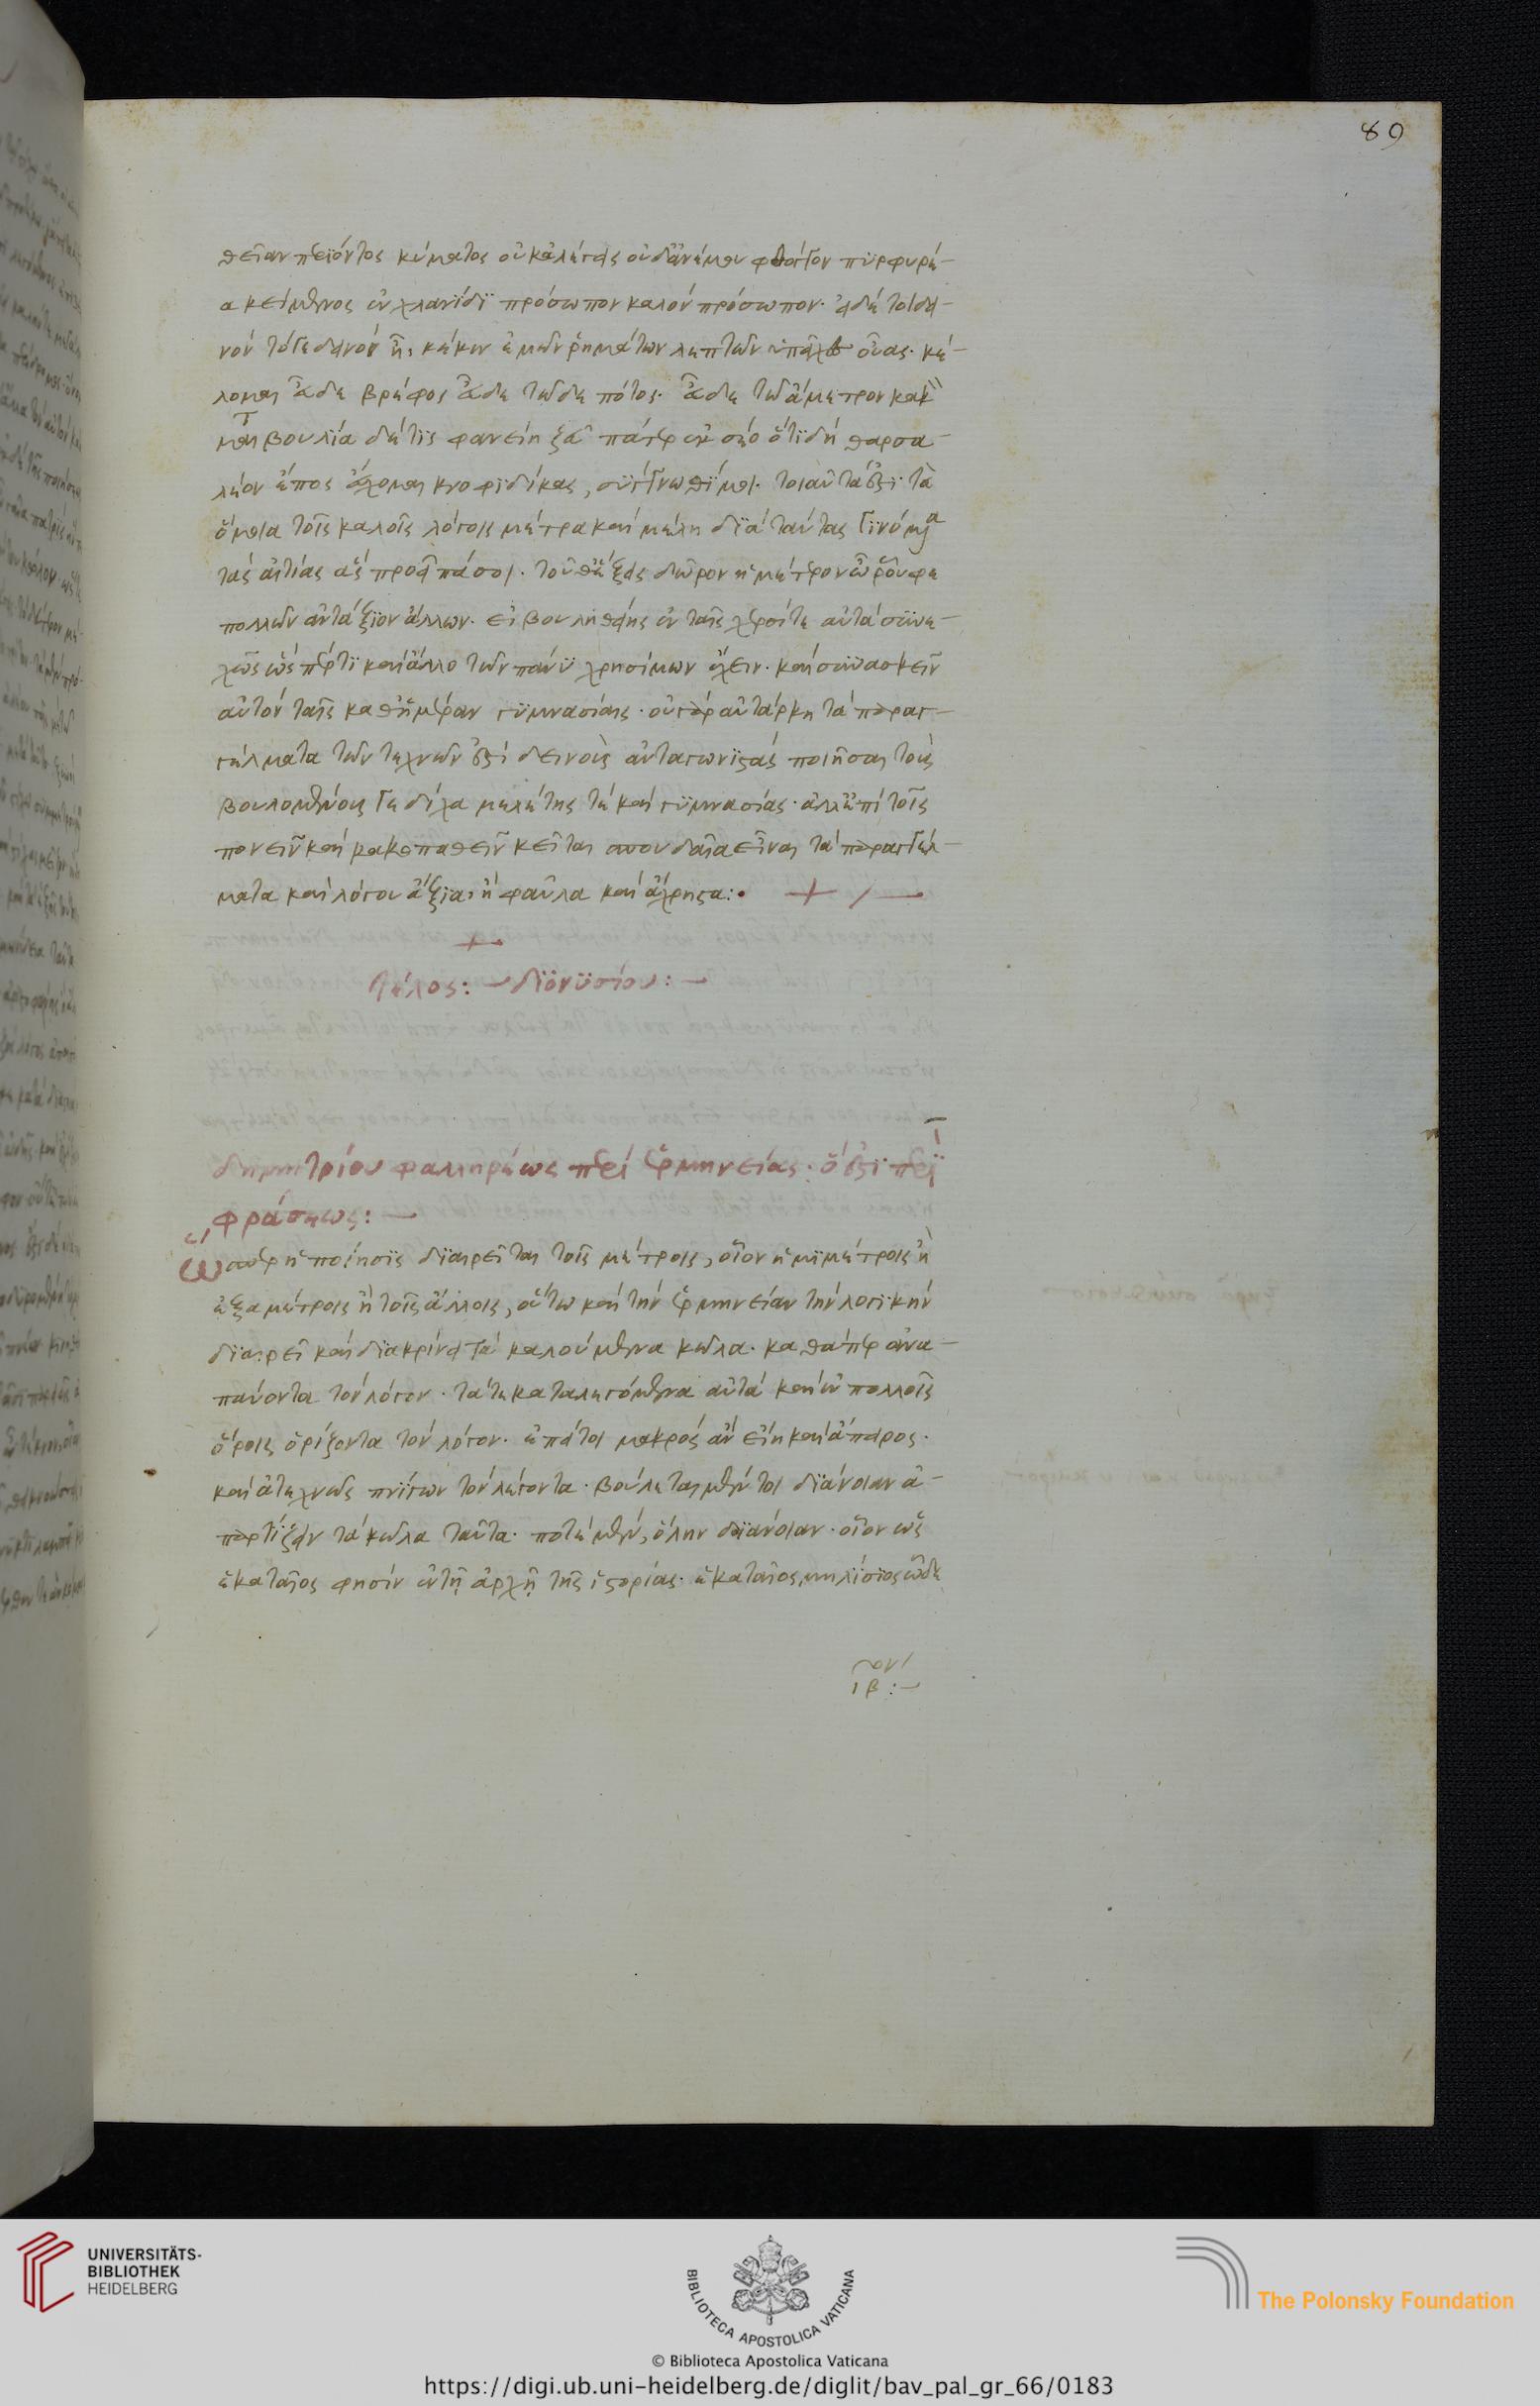 89
θεῖαν περϊόντος κύματος οὐκ ἀλέγεις οὐδ' ἀνέμου φθόγγον πϋρφυρέ-
α κείμενος ἐν χλανίδϊ πρόσωπον καλὸν πρόσωπον· εἰ δέ τοι δει-
νὸν τό γε δεινὸν ἦι, καί κεν ἐμῶν ῥημάτων λεπτῶν ὑπεῖχες οὖας· κέ-
λομαι εὗδε βρέφος εὗδε
βουλία δέ τϊς φανείη ζεῦ πάτερ ἐκ σέο ὅτϊ δὴ θαρσα-
λέον ἔπος εὔχομαι
ὅμοια τοῖς καλοῖς λόγοις μέτρα καὶ μέλη δϊὰ ταύτας γϊνόμενα
τὰς αἰτίας ἃς προεῖπά σοι· τοῦθ' ἕξεις δῶρον ἡμέτερον ὦ ῥοῦφε
πολλῶν ἀντάξϊον ἄλλων· εἰ βουληθείης ἐν ταῖς χερσί τε αὐτὰ σϋνε-
χῶς ὥς πέρ τϊ καὶ ἄλλο τῶν πάνϋ χρησίμων ἔχειν· καὶ σϋνασκεῖν
αὐτὸν ταῖς καθ' ἡμέραν γϋμνασίαις· οὐ γὰρ αὐτάρκη τὰ παραγ-
γέλματα τῶν τεχνῶν ἐστὶ δεινοὺς ἀνταγωνϊστὰς ποιῆσαι τοὺς
βουλομένους γε δίχα μελέτης τέ καὶ γϋμνασίας· ἀλλ' ἐπὶ τοῖς
πονεῖν καὶ κακοπαθεῖν κεῖται σπουδαῖα εἶναι τὰ παραγγέλ-
ματα καὶ λόγου ἄξϊα, ἢ φαῦλα καὶ ἄχρηστα:•
τέλος:— δϊονϋσίου:—
δημητρίου φαληρέως περὶ ἑρμηνείας· ὅ ἐστϊ περϊ
φράσεως:—
ὥσπερ ἡ ποίησϊς δϊαιρεῖται τοῖς μέτροις, οἷον ἡμϊμέτροις ἢ
ἑξαμέτροις ἢ τοῖς ἄλλοις, οὕτω καὶ τὴν ἑρμηνείαν τὴν λογϊκὴν
δϊαιρεῖ καὶ δϊακρίνει τὰ καλούμενα κῶλα· καθάπερ ἀνα-
παύοντα τὸν λόγον· τά τε καταλεγόμενα αὐτὰ καὶ ἐν πολλοῖς
ὅροις ὁρίζοντα τὸν λόγον· ἐπεί τοι μακρὸς ἂν εἴη καὶ ἄπειρος·
καὶ ἀτεχνῶς πνίγων τὸν λέγοντα· βούλεται μέν τοι δϊάνοιαν ἀ-
παρτίζειν τὰ κῶλα ταῦτα· ποτὲ μὲν, ὅλην δϊάνοιαν· οἷον ὡς
ἑκαταῖος φησὶν ἐν τῇ ἀρχῇ τῆς ἱστορίας· ἑκαταῖος, μηλίσϊος ὧδε
ιβ:—
UNIVERSITÄTS-
BIBLIOTHEK
HEIDELBERG
BIBLIOTECA APOSTOLICA VATICANA
The Polonsky Foundation
© Biblioteca Apostolica Vaticana
https://digi.ub.uni-heidelberg.de/diglit/bav_pal_gr_66/0183